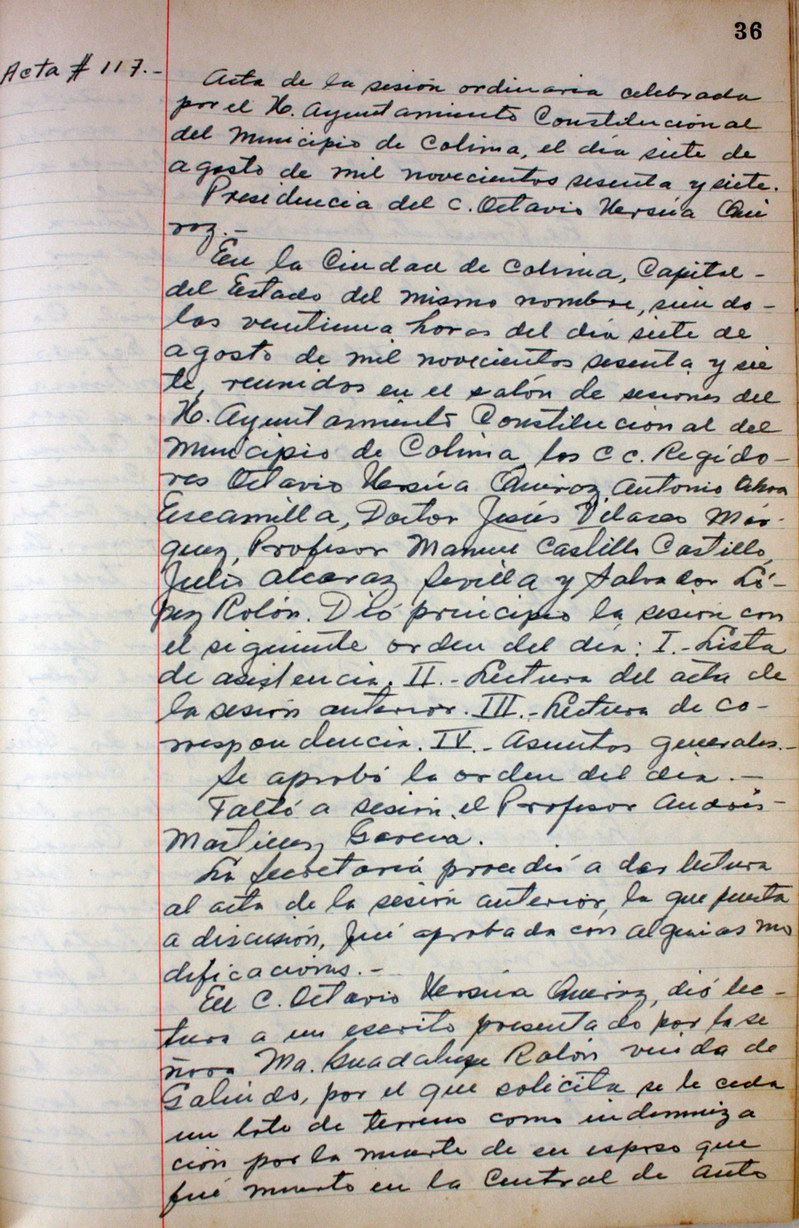 36
Acta # 117.-
Acta de la sesión ordinaria celebrada
por el H. Ayuntamiento Constitucional
del Municipio de Colima, el día siete de
agosto de mil novecientos sesenta y siete.
Presidencia del C. Octavio Ursúa Qui
roz.-
En la Ciudad de Colima, Capital -
del Estado del mismo nombre, siendo -
las veintiuna horas del día siete de
agosto de mil novecientos sesenta y sie
te, reunidos en el salón de sesiones del
H. Ayuntamiento Constitucional del
Municipio de Colima, los C C. Regido-
res Octavio Ursúa Quiroz, Antonio
Escamilla, Doctor Jesús Vilasco Már-
quez, Profesor Manuel Castillo Castillo,
Julio Alcaraz Sevilla y Salvador Ló-
pez Rolón. Dió principio la sesión con
el siguiente orden del día: I.- Lista
de asistencia. II.- Lectura del acta de
la sesión anterior. III.- Lectura de co-
rrespondencia. IV.- Asuntos generales.-
Se aprobó la orden del día.-
Faltó a sesión el Profesor Andrés -
Martínez García.
La Secretaría procedió a dar lectura
al acta de la sesión anterior, la que puesta
a discusión, fué aprobada con algunas mo
dificaciones.-
El C. Octavio Ursúa Quiroz, dió lec-
tura a un escrito presentado por la se
ñora Ma. Guadalupe Rolón viuda de
Galindo, por el que solicita se le ceda
un lote de terreno como indemniza
ción por la muerte de su esposo que
fué muerto en la Central de Auto